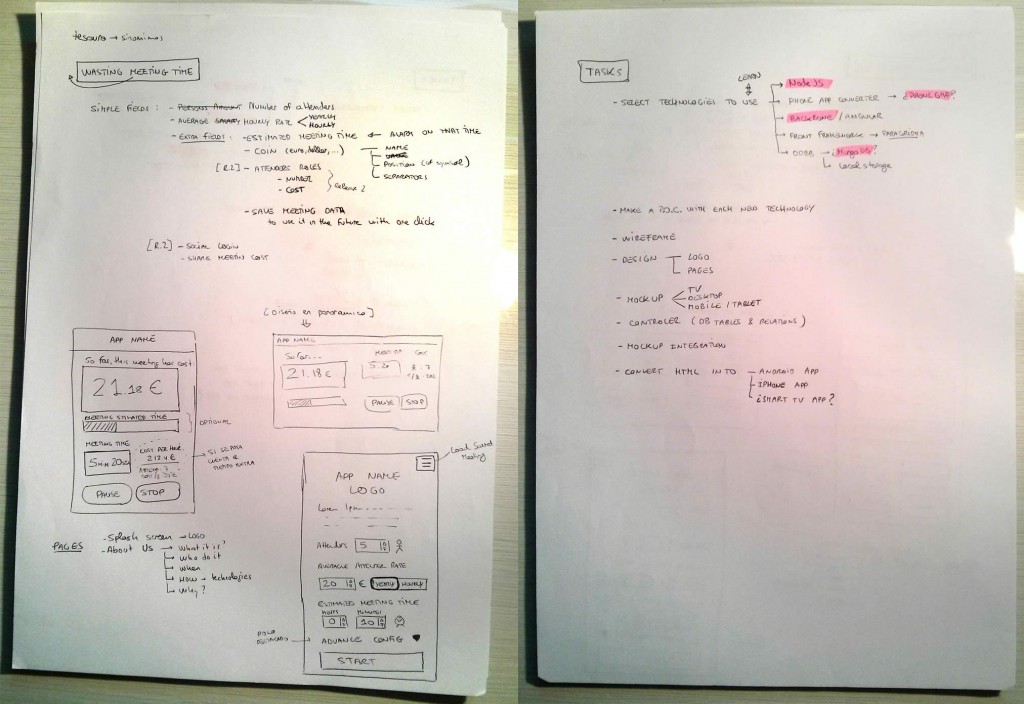 tesauro → sinonimos
WASTING MEETING TIME
SIMPLE FIELDS : - PERSONS AMOUNT NUMBER OF ATTENDERS
- AVERAGE SALARY HOURLY RATE < YEARLY
HOURLY
- EXTRA FIELDS : - ESTIMATED MEETING TIME ← ALARM ON THAT TIME
- COIN (euro, dollar, ...) — NAME
POSITION (of symbol)
SEPARATORS
[R.2] - ATTENDERS ROLES
- NUMBER
- COST
Release 2
- SAVE MEETING DATA
to use it in the future with one click
[R.2] - SOCIAL LOGIN
- SHARE MEETIN COST
[Diseño en panoramico]
APP NAME
So far, this meeting has cost
21.18 €
MEETING ESTIMATED TIME
OPTIONAL
MEETING TIME
5 min 20
COST PER HOUR
212.4 €
PAUSE STOP
APP NAME
So far...
21.18 €
5.20
PAUSE STOP
Load Saved
Meeting
APP NAME
LOGO
Lorem Ipsum
Attenders 5
AVERAGE ATTENDER RATE
20 € YEARLY HOURLY
ESTIMATED MEETING TIME
HOURS MINUTES
0 10
ADVANCE CONFIG
START
PAGES
- Splash screen → LOGO
- About Us → What it is?
Who do it
When
HOW → technologies
Why?
TASKS
LEARN
- SELECT TECHNOLOGIES TO USE
Node JS
PHONE APP CONVERTER → ¿PHONE GAP?
BACKBONE / ANGULAR
FRONT FRAMEWORK → PARAGRIDMA
OODB → ¿MongoDB?
Local storage
- MAKE A P.O.C. WITH EACH NEW TECHNOLOGY
- WIREFRAME
- DESIGN — LOGO
PAGES
- MOCKUP < TV
DESKTOP
MOBILE / TABLET
- CONTROLER (DB TABLES & RELATIONS)
- MOCKUP INTEGRATION
- CONVERT HTML INTO — ANDROID APP
- IPHONE APP
- ¿SMART TV APP?